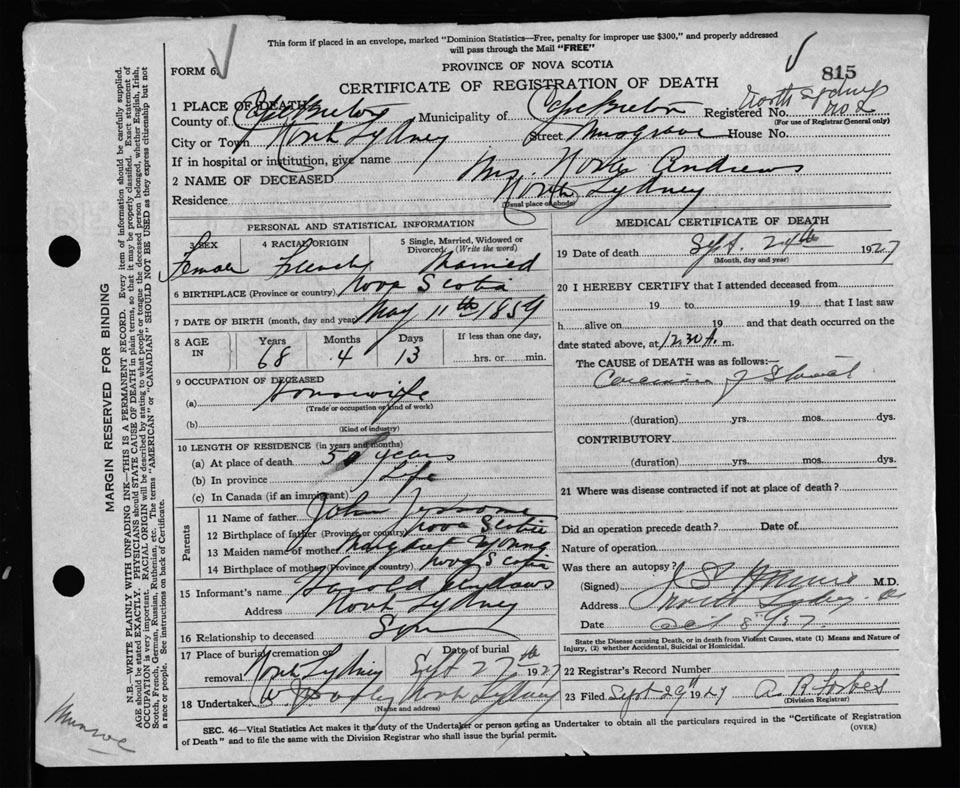 This form if placed in an envelope, marked "Dominion Statistics—Free, penalty for improper use $300," and properly addressed
will pass through the Mail "FREE"
FORM 6.
PROVINCE OF NOVA SCOTIA
815
CERTIFICATE OF REGISTRATION OF DEATH
1 PLACE OF DEATH
North Sydney
County of Cape Breton Municipality of Cape Breton Registered No.
(For use of Registrar General only)
City or Town North Sydney Street Musgrave House No.
If in hospital or institution, give name
2 NAME OF DECEASED Mrs. Andrews
Residence North Sydney
(Usual place of abode)
PERSONAL AND STATISTICAL INFORMATION
3 SEX 4 RACIAL ORIGIN 5 Single, Married, Widowed or Divorced (Write the word)
Female French Married
6 BIRTHPLACE (Province or country) Nova Scotia
7 DATE OF BIRTH (month, day and year) May 11th 1859
8 AGE IN Years Months Days If less than one day,
68 4 13 hrs. or min.
9 OCCUPATION OF DECEASED
(a) Housewife
(Trade or occupation or kind of work)
(b)
(Kind of industry)
10 LENGTH OF RESIDENCE (in years and months)
(a) At place of death years
(b) In province Life
(c) In Canada (if an immigrant)
Parents
11 Name of father John
12 Birthplace of father (Province or country) Nova Scotia
13 Maiden name of mother Margaret Young
14 Birthplace of mother (Province or country) Nova Scotia
15 Informant's name Harold Andrews
Address North Sydney
16 Relationship to deceased Son
17 Place of burial, cremation or removal Date of burial
North Sydney Sept 27th 1927
18 Undertaker North Sydney
(Name and address)
MEDICAL CERTIFICATE OF DEATH
19 Date of death Sept. 24th 1927
(Month, day and year)
20 I HEREBY CERTIFY that I attended deceased from
19 to 19 that I last saw
h alive on 19 and that death occurred on the
date stated above, at 12.30 A. m.
The CAUSE of DEATH was as follows:—
Carcinoma of Stomach
(duration) yrs. mos. dys.
CONTRIBUTORY
(duration) yrs. mos. dys.
21 Where was disease contracted if not at place of death?
Did an operation precede death? Date of
Nature of operation
Was there an autopsy?
(Signed) M.D.
Address North Sydney
Date Oct
State the Disease causing Death, or in death from Violent Causes, state (1) Means and Nature of
Injury, (2) whether Accidental, Suicidal or Homicidal.
22 Registrar's Record Number
23 Filed Sept 29th 1927 A. R. Forbes
(Division Registrar)
SEC. 46—Vital Statistics Act makes it the duty of the Undertaker or person acting as Undertaker to obtain all the particulars required in the "Certificate of Registration
of Death" and to file the same with the Division Registrar who shall issue the burial permit.
(OVER)
MARGIN RESERVED FOR BINDING
N.B.—WRITE PLAINLY WITH UNFADING INK—THIS IS A PERMANENT RECORD. Every item of information should be carefully supplied.
AGE should be stated EXACTLY. PHYSICIANS should STATE CAUSE OF DEATH in plain terms, so that it may be properly classified. Exact statement of
OCCUPATION is very important. RACIAL ORIGIN will be described by stating to what people or tongue the deceased person belonged, whether English, Irish,
Scotch, French, German, Russian, Ruthenian, etc. The terms "AMERICAN" or "CANADIAN" SHOULD NOT BE USED as they express citizenship but not
a race or people. See instructions on back of Certificate.
Munroe